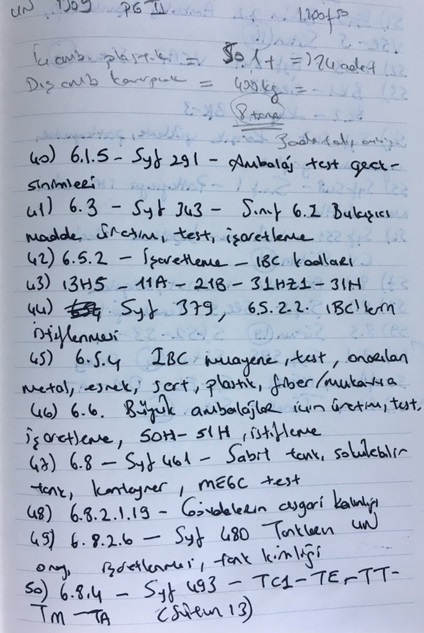 UN 1309 PG II 1.200 fıçı
İç amb plastik = 50 lt = 24 adet
Dış amb kompozit = 400 kg =
8 tane
40) 6.1.5 - Syf 291 - Ambalaj test gerek-
sinimleri
41) 6.3 - Syf 343 - Sınıf 6.2 Bulaşıcı
madde, üretim, test, işaretleme
42) 6.5.2 - İşaretleme - IBC kodları
43) 13H5 - 11A - 21B - 31HZ1 - 31N
44) Syf 379, 6.5.2.2. IBC'lerin
istiflenmesi
45) 6.5.4 IBC muayene, test, onayları
metal, esnek, sert, plastik, fiber/mukavva
46) 6.6. Büyük ambalajlar için üretim, test,
işaretleme, 50H - 51H, istifleme
47) 6.8 - Syf 461 - Sabit tank, sökülebilir
tank, konteyner, MEGC test
48) 6.8.2.1.19 - Gövdelerin asgari kalınlığı
49) 6.8.2.6 - Syf 480 Tankların UN
onay, işaretlenmesi, tank kimliği
50) 6.8.4 - Syf 493 - TC1 - TE - TT -
TM - TA (Sütun 13)